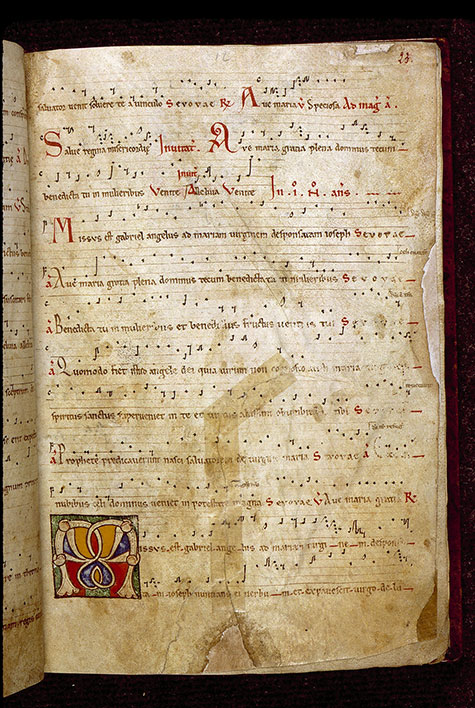 23
salvator venit solvere te a vinculo Sevovae R Ave maria V Speciosa Ad mag A.
Salve regina misericordie Invitat. Ave maria gratia plena dominus tecum
Invit
benedicta tu in mulieribus Venite Alleluia Venite In .i. N. ans.
Missus est gabriel angelus ad mariam virginem desponsatam ioseph Sevovae
a Ave maria gratia plena dominus tecum benedicta tu in mulieribus Sevovae
a Benedicta tu in mulieribus et benedictus fructus ventris tui Sevovae
a Quomodo fiet istud angele dei quia virum non maria
spiritus sanctus superveniet in te et virtus altissimi obumbrabit tibi Sevovae
a Prophete predicaverunt nasci salvatorem de virgine maria Sevovae a
nubibus celi dominus veniet in potestate magna Sevovae V Ave maria gratia R
Missus est gabriel angelus ad mariam virginem desponsa
tam ioseph nuntians ei verbum et expavescit virgo de lu